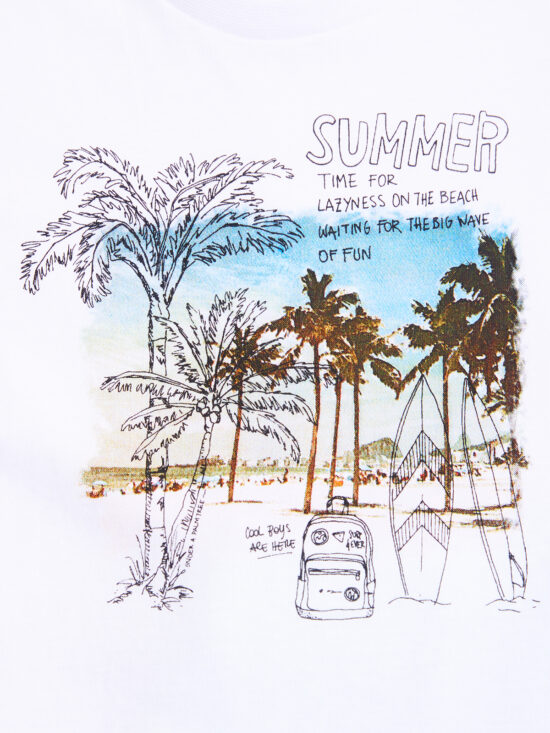 SUMMER
TIME FOR
LAZYNESS ON THE BEACH
WAITING FOR THE BIG WAVE
OF FUN
COOL BOYS
ARE HERE
SURF
4EVER
UNDER A PALM TREE